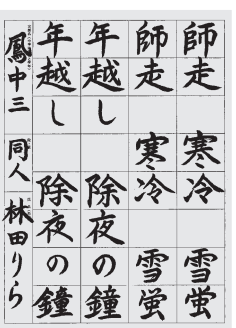 師走 寒冷 雪蛍
師走 寒冷 雪蛍
年越し 除夜の鐘
年越し 除夜の鐘
鳳中三 同人 林田りら